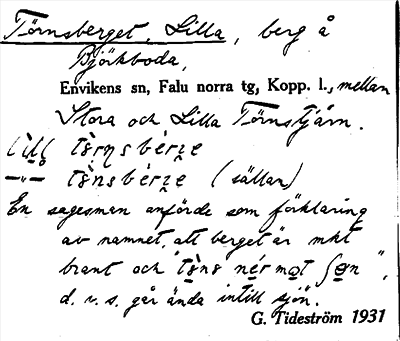 Törnsberget, Lilla, berg å
Björkboda,
Envikens sn, Falu norra tg, Kopp. l., mellan
Stora och Lilla Törnstjärn.
(sällan)
En sagesman anförde som förklaring
av namnet, att berget är mkt
brant och
d. v. s. går ända intill sjön.
G. Tideström 1931